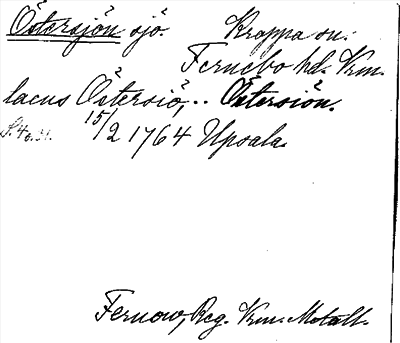 Östersjön sjö Kroppa sn.
Fernebo hd. Vrm.
lacus Östersiö, .. Östersiön.
15/2 1764 Upsala.
Fernow, Reg. Vrm. Metall.